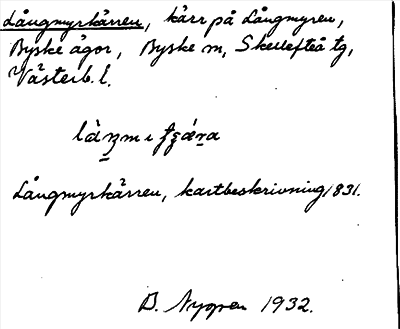 Långmyrkärren, kärr på Långmyren,
Byske ägor, Byske sn, Skellefteå tg,
Västerb. l.
Långmyrkärren, kartbeskrivning 1831.
B. Nygren 1932.